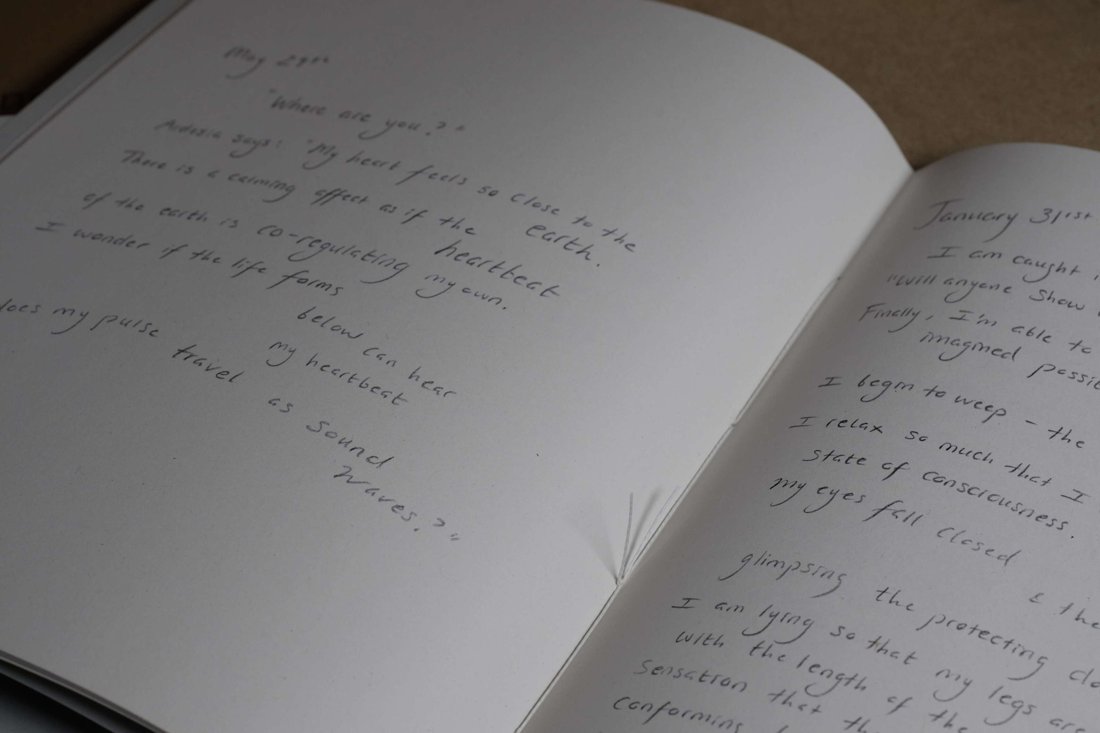 May 29th
"Where are you?"
says: "My heart feels so close to the
earth.
There is a calming affect as if the heartbeat
of the earth is co-regulating my own.
I wonder if the life forms
below can hear
my heartbeat
does my pulse travel
as sound
waves?"
January 31st
I am caught
"will anyone show
Finally, I'm able to
imagined
I begin to weep - the
I relax so much that I
state of consciousness.
my eyes fall closed
& the
glimpsing the protecting
I am lying so that my legs are
with the length of the
sensation that
conforming